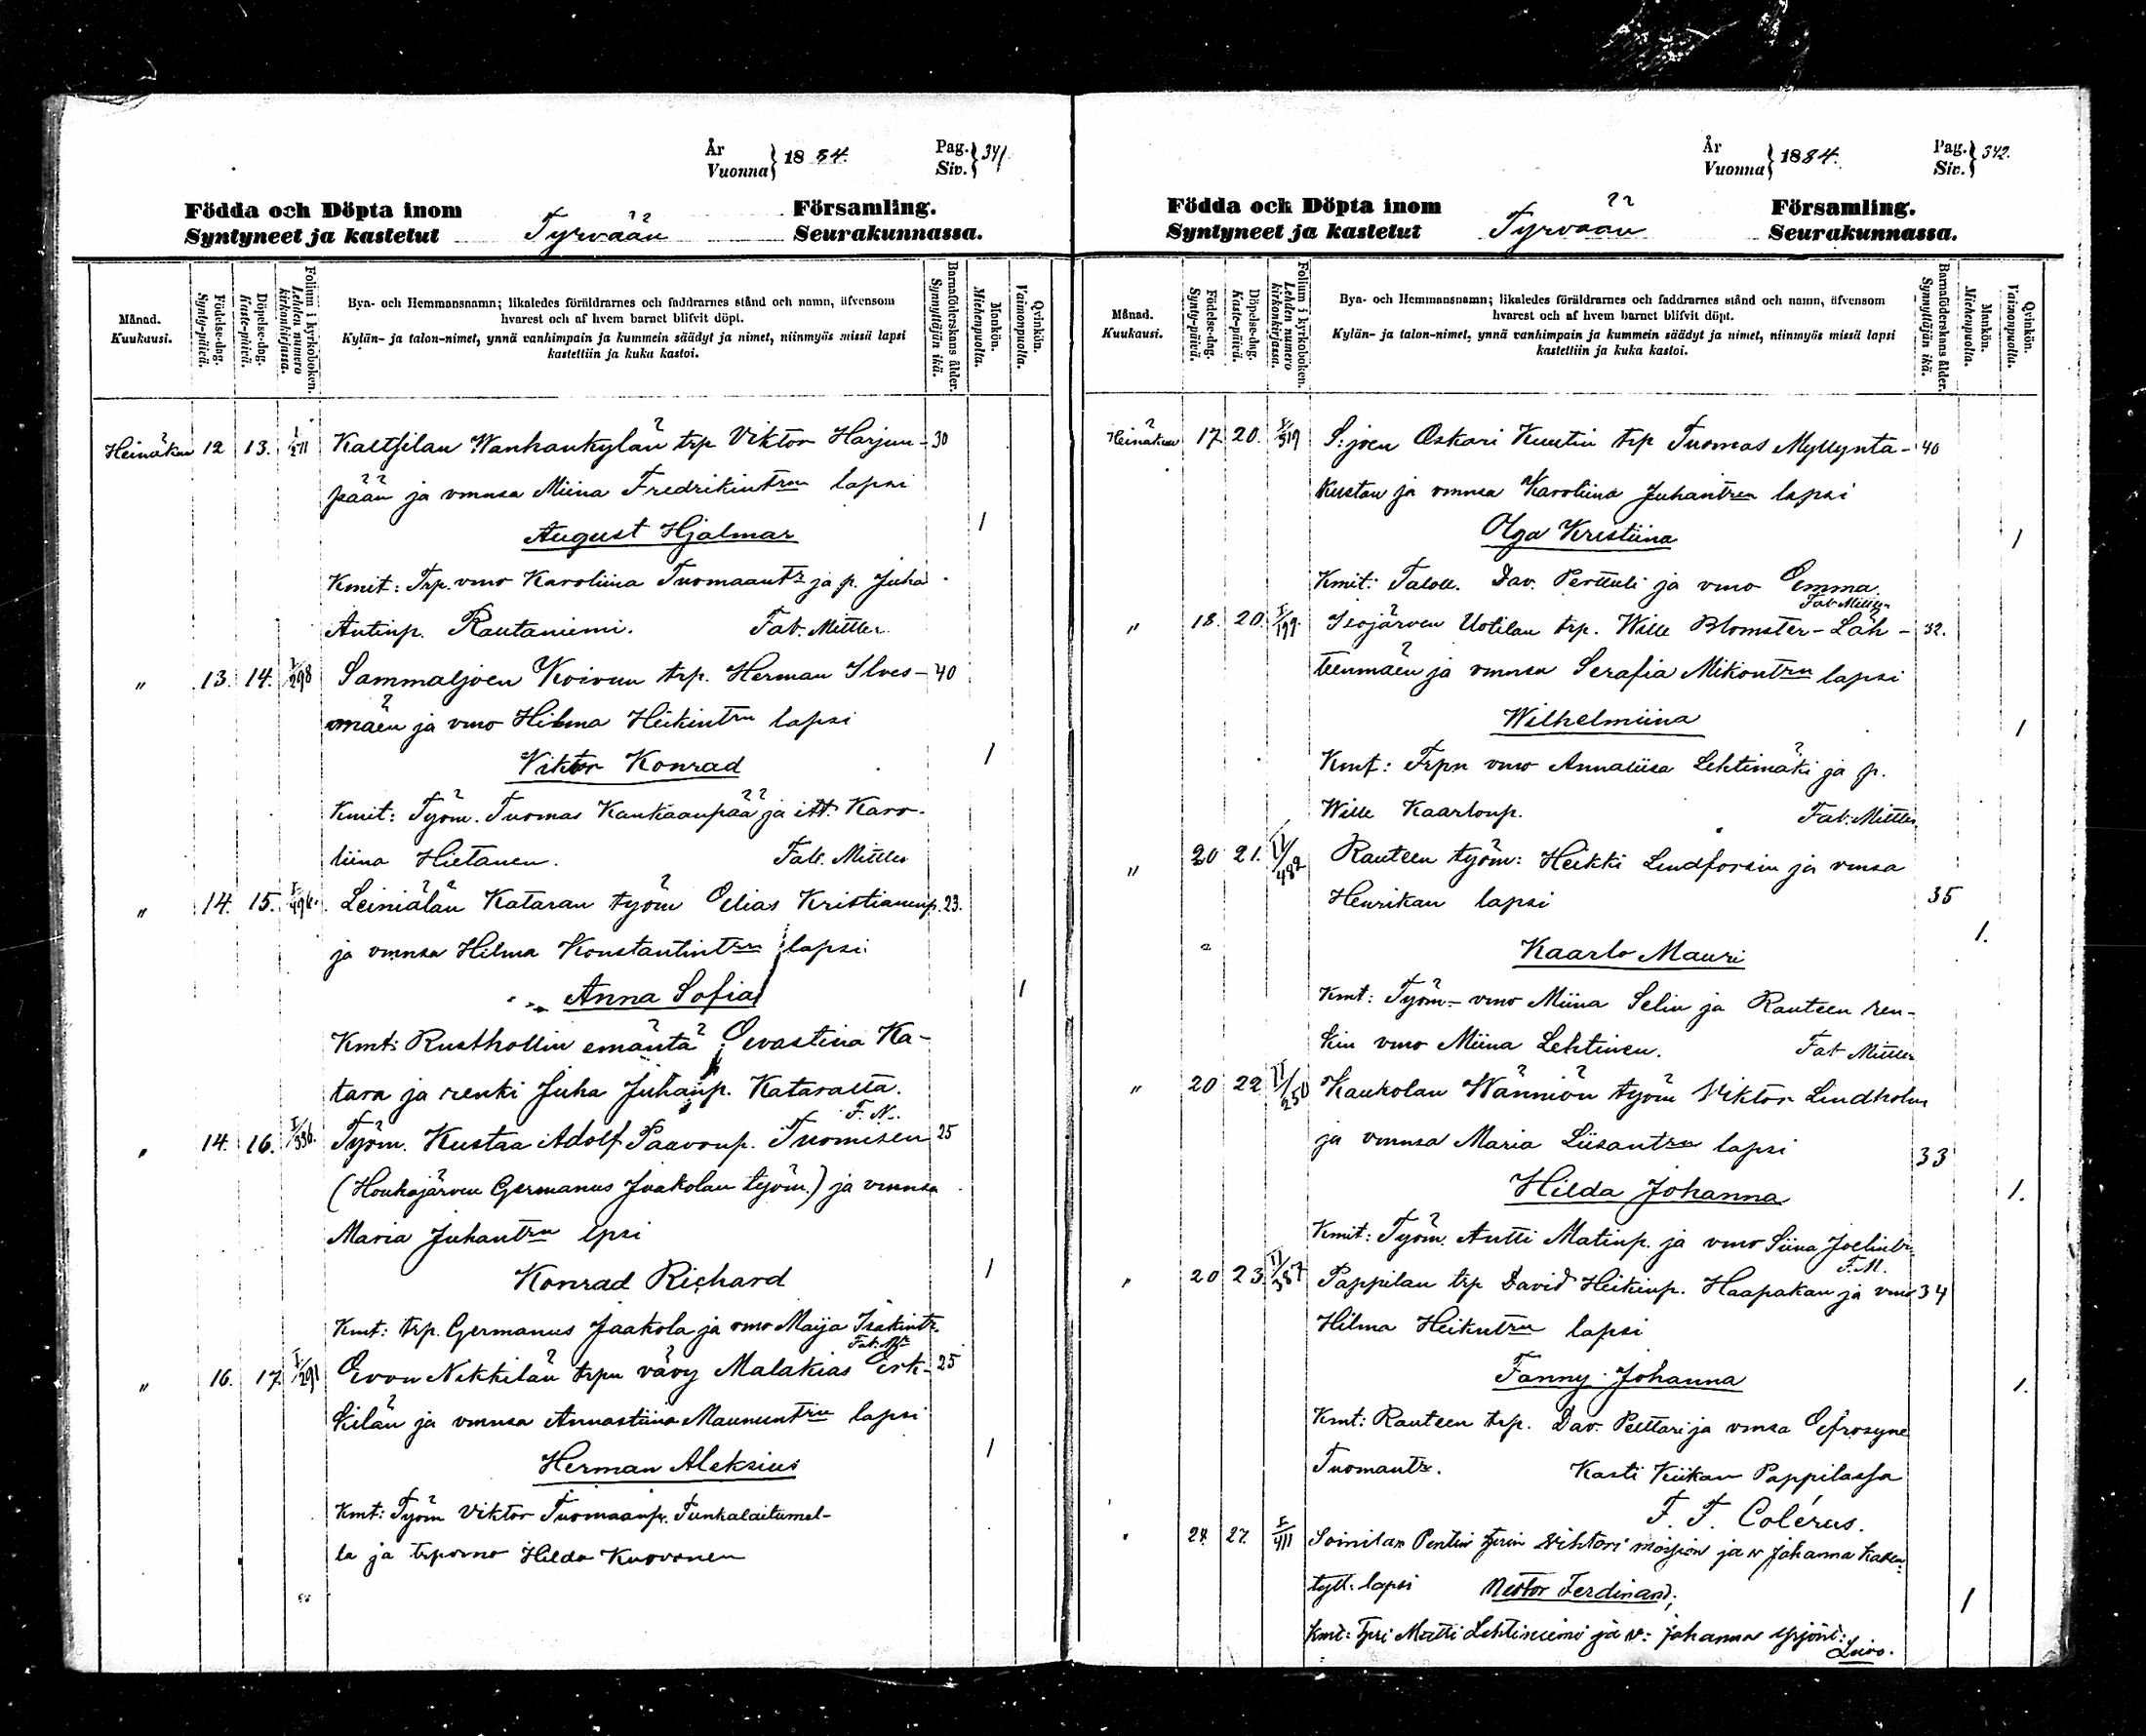 År
Vuonna } 1884.
Pag.
Siv. } 341
Födda och Döpta inom
Syntyneet ja kastetut
Tyrvään
Församling.
Seurakunnassa.
Månad.
Kuukausi.
Födelse-dag.
Synty-päivä.
Döpelse-dag.
Kaste-päivä.
Folium i kyrkoboken.
Lehden numero kirkonkirjassa.
Bya- och Hemmansnamn; likaledes föräldrarnes och faddrarnes stånd och namn, äfvensom
hvarest och af hvem barnet blifvit döpt.
Kylän- ja talon-nimet, ynnä vanhimpain ja kummein säädyt ja nimet, niinmyös missä lapsi
kastettiin ja kuka kastoi.
Barnaföderskans ålder.
Synnyttäjän ikä.
Mankön.
Miehenpuolta.
Qvinkön.
Vaimonpuolta.
Heinäkuu 12 13. I/271 Kaltsilan Wanhankylän trp Viktor Harjun- 30
pään ja vmnsa Miina Fredrikintrn lapsi
August Hjalmar 1
Kmit: Trp. vmo Karoliina Tuomaantr ja p. Juha
Antinp. Rautaniemi. Fab. Mittler
" 13. 14. I/298 Sammaljoen Koivun trp. Herman Ilves- 40
mäen ja vmo Hilma Heikintrn lapsi
Viktor Konrad 1
Kmit: Työm. Tuomas Kankaanpää ja itt. Karo-
liina Hietanen. Fab. Mittler
" 14. 15. I/496. Leiniälän Kataran työm Elias Kristianinp. 23.
ja vmnsa Hilma Konstantintrn lapsi
Anna Sofia 1
Kmt: Rusthollin emäntä Evastina Ka-
tara ja renki Juha Juhanp. Kataralta.
F. N.
" 14. 16. I/336. Työm. Kustaa Adolf Paavonp. Tuomisen 25
(Houhajärven Germanus Jaakolan työm.) ja vmnsa
Maria Juhantrn lpsi
Konrad Richard 1
Kmt: trp. Germanus Jaakola ja vmo Maija Isakintr.
" 16. 17 I/291 Evon Nikkilän trpn vävy Malakias Erk- 25
kilän ja vmnsa Annastiina Maununtrn lapsi
Herman Aleksius 1
Kmt: Työm Viktor Tuomaanp. Punkalaitumel-
la ja trpvmo Hilda Kuovonen
År
Vuonna } 1884.
Pag.
Siv. } 342.
Födda och Döpta inom
Syntyneet ja kastetut
Tyrvään
Församling.
Seurakunnassa.
Månad.
Kuukausi.
Födelse-dag.
Synty-päivä.
Döpelse-dag.
Kaste-päivä.
Folium i kyrkoboken.
Lehden numero kirkonkirjassa.
Bya- och Hemmansnamn; likaledes föräldrarnes och faddrarnes stånd och namn, äfvensom
hvarest och af hvem barnet blifvit döpt.
Kylän- ja talon-nimet, ynnä vanhimpain ja kummein säädyt ja nimet, niinmyös missä lapsi
kastettiin ja kuka kastoi.
Barnaföderskans ålder.
Synnyttäjän ikä.
Mankön.
Miehenpuolta.
Qvinkön.
Vaimonpuolta.
Heinäkuu 17 20. I/319 S:joen Oskari Kuutin trp Tuomas Myllynta- 40
kustan ja vmnsa Karoliina Juhantrn lapsi
Olga Kristiina 1
Kmit: Taloll. Dav. Perttuli ja vmo Emma.
Fab Mittler
" 18. 20. I/199 Isojärven Uotilan trp. Wille Blomster-Läh- 32.
teenmäen ja vmnsa Serafia Mikontrn lapsi
Wilhelmiina 1
Kmt: Trpn vmo Annaliisa Lehtimäki ja p.
Wille Kaarlonp. Fab. Mittler
" 20 21. II/482 Rauteen työm: Heikki Lindforsin ja vmsa
Henrikan lapsi 35
Kaarlo Mauri 1.
Kmt: Työm- vmo Miina Selin ja Rauteen ren-
kin vmo Miina Lehtinen. Fab Mittler
" 20 22 II/250 Kaukolan Wänniön työm Viktor Lindholm
ja vmnsa Maria Liisantrn lapsi 33
Hilda Johanna 1.
Kmit: Työm. Antti Matinp. ja vmo Siina Joelintr.
F. M.
" 20 23. II/387 Pappilan trp David Heikinp. Haapakan ja vmo 34
Hilma Heikintrn lapsi
Fanny Johanna 1.
Kmt: Rauteen trp. Dav. Pelttari ja vmsa Efrosyne
Tuomantr. Kasti Kiikan Pappilassa
F. F. Colérus.
" 24 27. I/411 Soinilan Pentin tprin Wihtori ja w Johanna
tytt. lapsi Nestor Ferdinand; 1
Kmt: Tpri Matti Lehtiniemi ja w: Johanna Yrjönt:
Leivo.